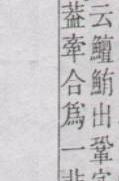 云鱣鮪出鞏
葢牽合爲一